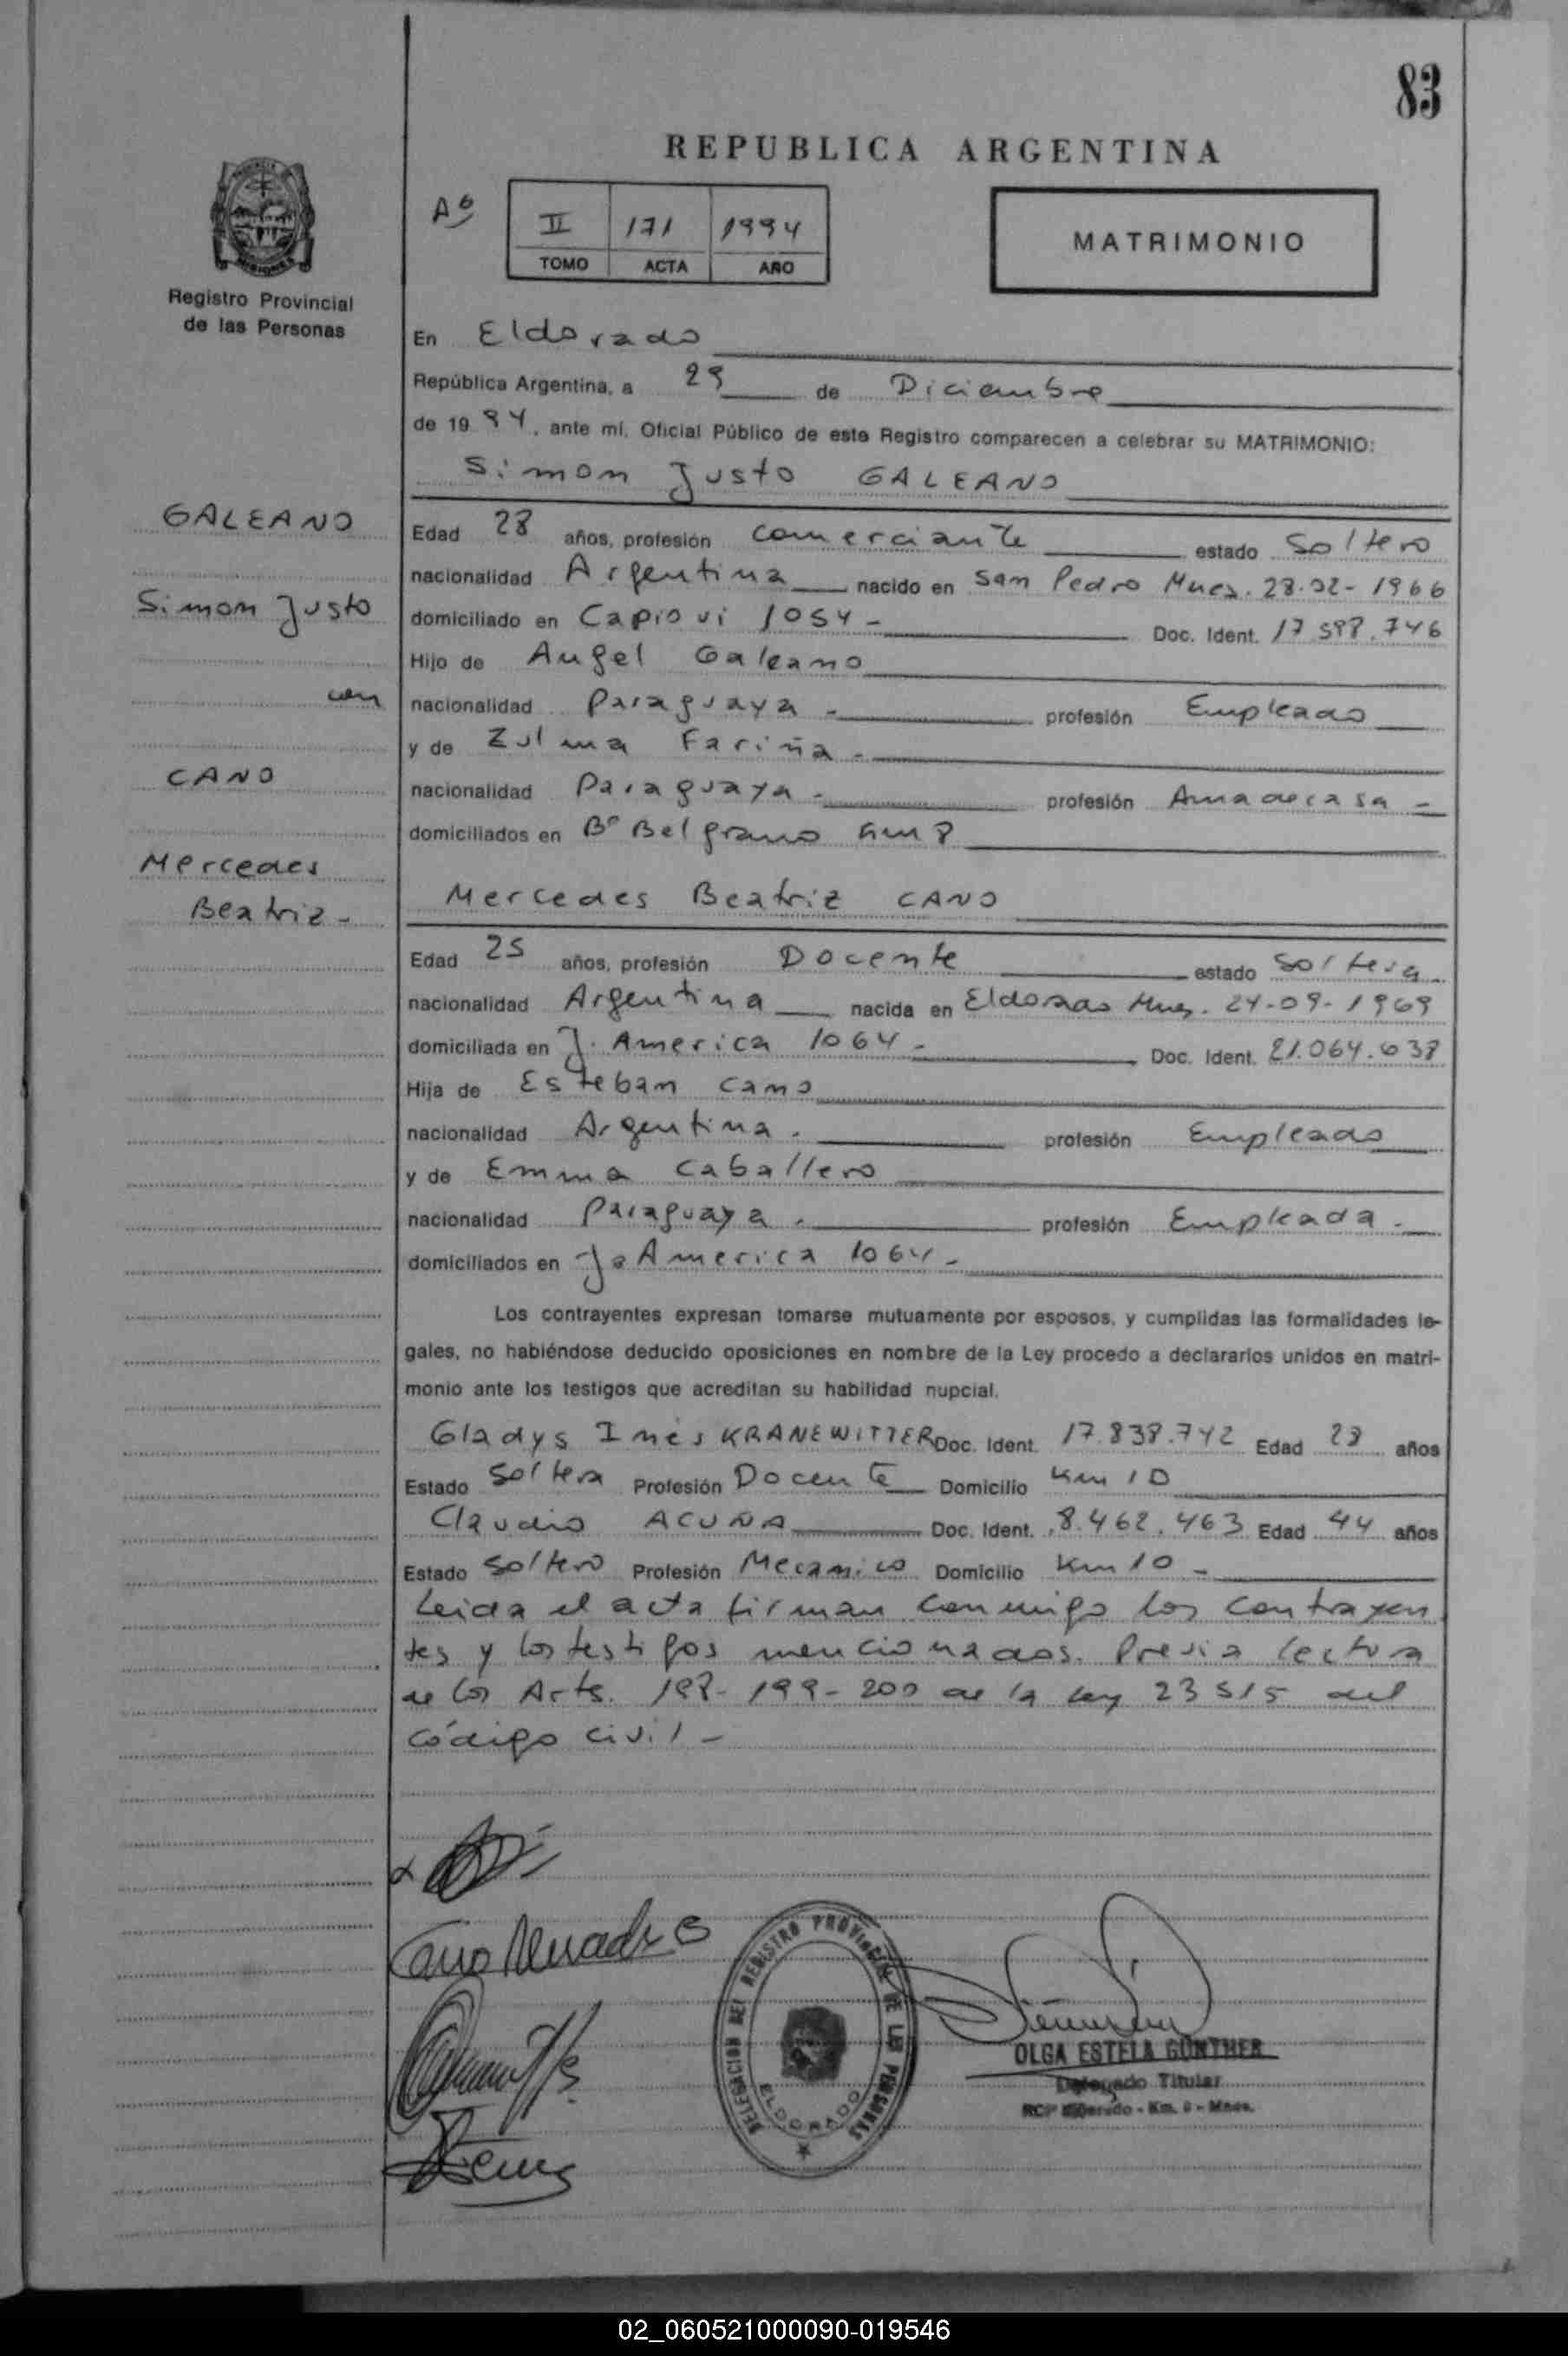 83
REPUBLICA ARGENTINA
II 171 1994
TOMO ACTA AÑO
MATRIMONIO
MISIONES
Registro Provincial
de las Personas
En Eldorado
República Argentina, a 29 de Diciembre
de 1994, ante mí, Oficial Público de este Registro comparecen a celebrar su MATRIMONIO:
Simon Justo GALEANO
GALEANO
Simon Justo
con
CANO
Mercedes
Beatriz -
Edad 28 años, profesión comerciante estado soltero
nacionalidad Argentina nacido en San Pedro Mnes. 28-02-1966
domiciliado en Capiovi 1054 - Doc. Ident. 17.598.746
Hijo de Angel Galeano
nacionalidad Paraguaya - profesión Empleado
y de Zulma Fariña -
nacionalidad Paraguaya - profesión Ama de casa -
domiciliados en Bº Belgrano km 8
Mercedes Beatriz CANO
Edad 25 años, profesión Docente estado soltera
nacionalidad Argentina nacida en Eldorado Mnes. 24-09-1969
domiciliada en J. America 1064 - Doc. Ident. 21.064.038
Hija de Esteban Cano
nacionalidad Argentina - profesión Empleado
y de Emma Caballero
nacionalidad Paraguaya - profesión Empleada -
domiciliados en Ja America 1064 -
Los contrayentes expresan tomarse mutuamente por esposos, y cumplidas las formalidades le-
gales, no habiéndose deducido oposiciones en nombre de la Ley procedo a declararlos unidos en matri-
monio ante los testigos que acreditan su habilidad nupcial.
Gladys Inés KRANEWITTER Doc. Ident. 17.838.742 Edad 28 años
Estado soltera Profesión Docente Domicilio Km 10
Claudio ACUÑA Doc. Ident. 8.462.463 Edad 44 años
Estado soltero Profesión Mecanico Domicilio Km 10 -
Leida el acta firman conmigo los contrayen
tes y los testigos mencionados. Previa lectura
de los Arts. 198-199-200 de la ley 23515 del
código civil -
Cano Mercedes B
DELEGACION DEL REGISTRO PROVINCIAL DE LAS PERSONAS
ELDORADO
OLGA ESTELA GÜNTHER
Delegado Titular
RCP Eldorado - Km. 9 - Mnes.
02_060521000090-019546